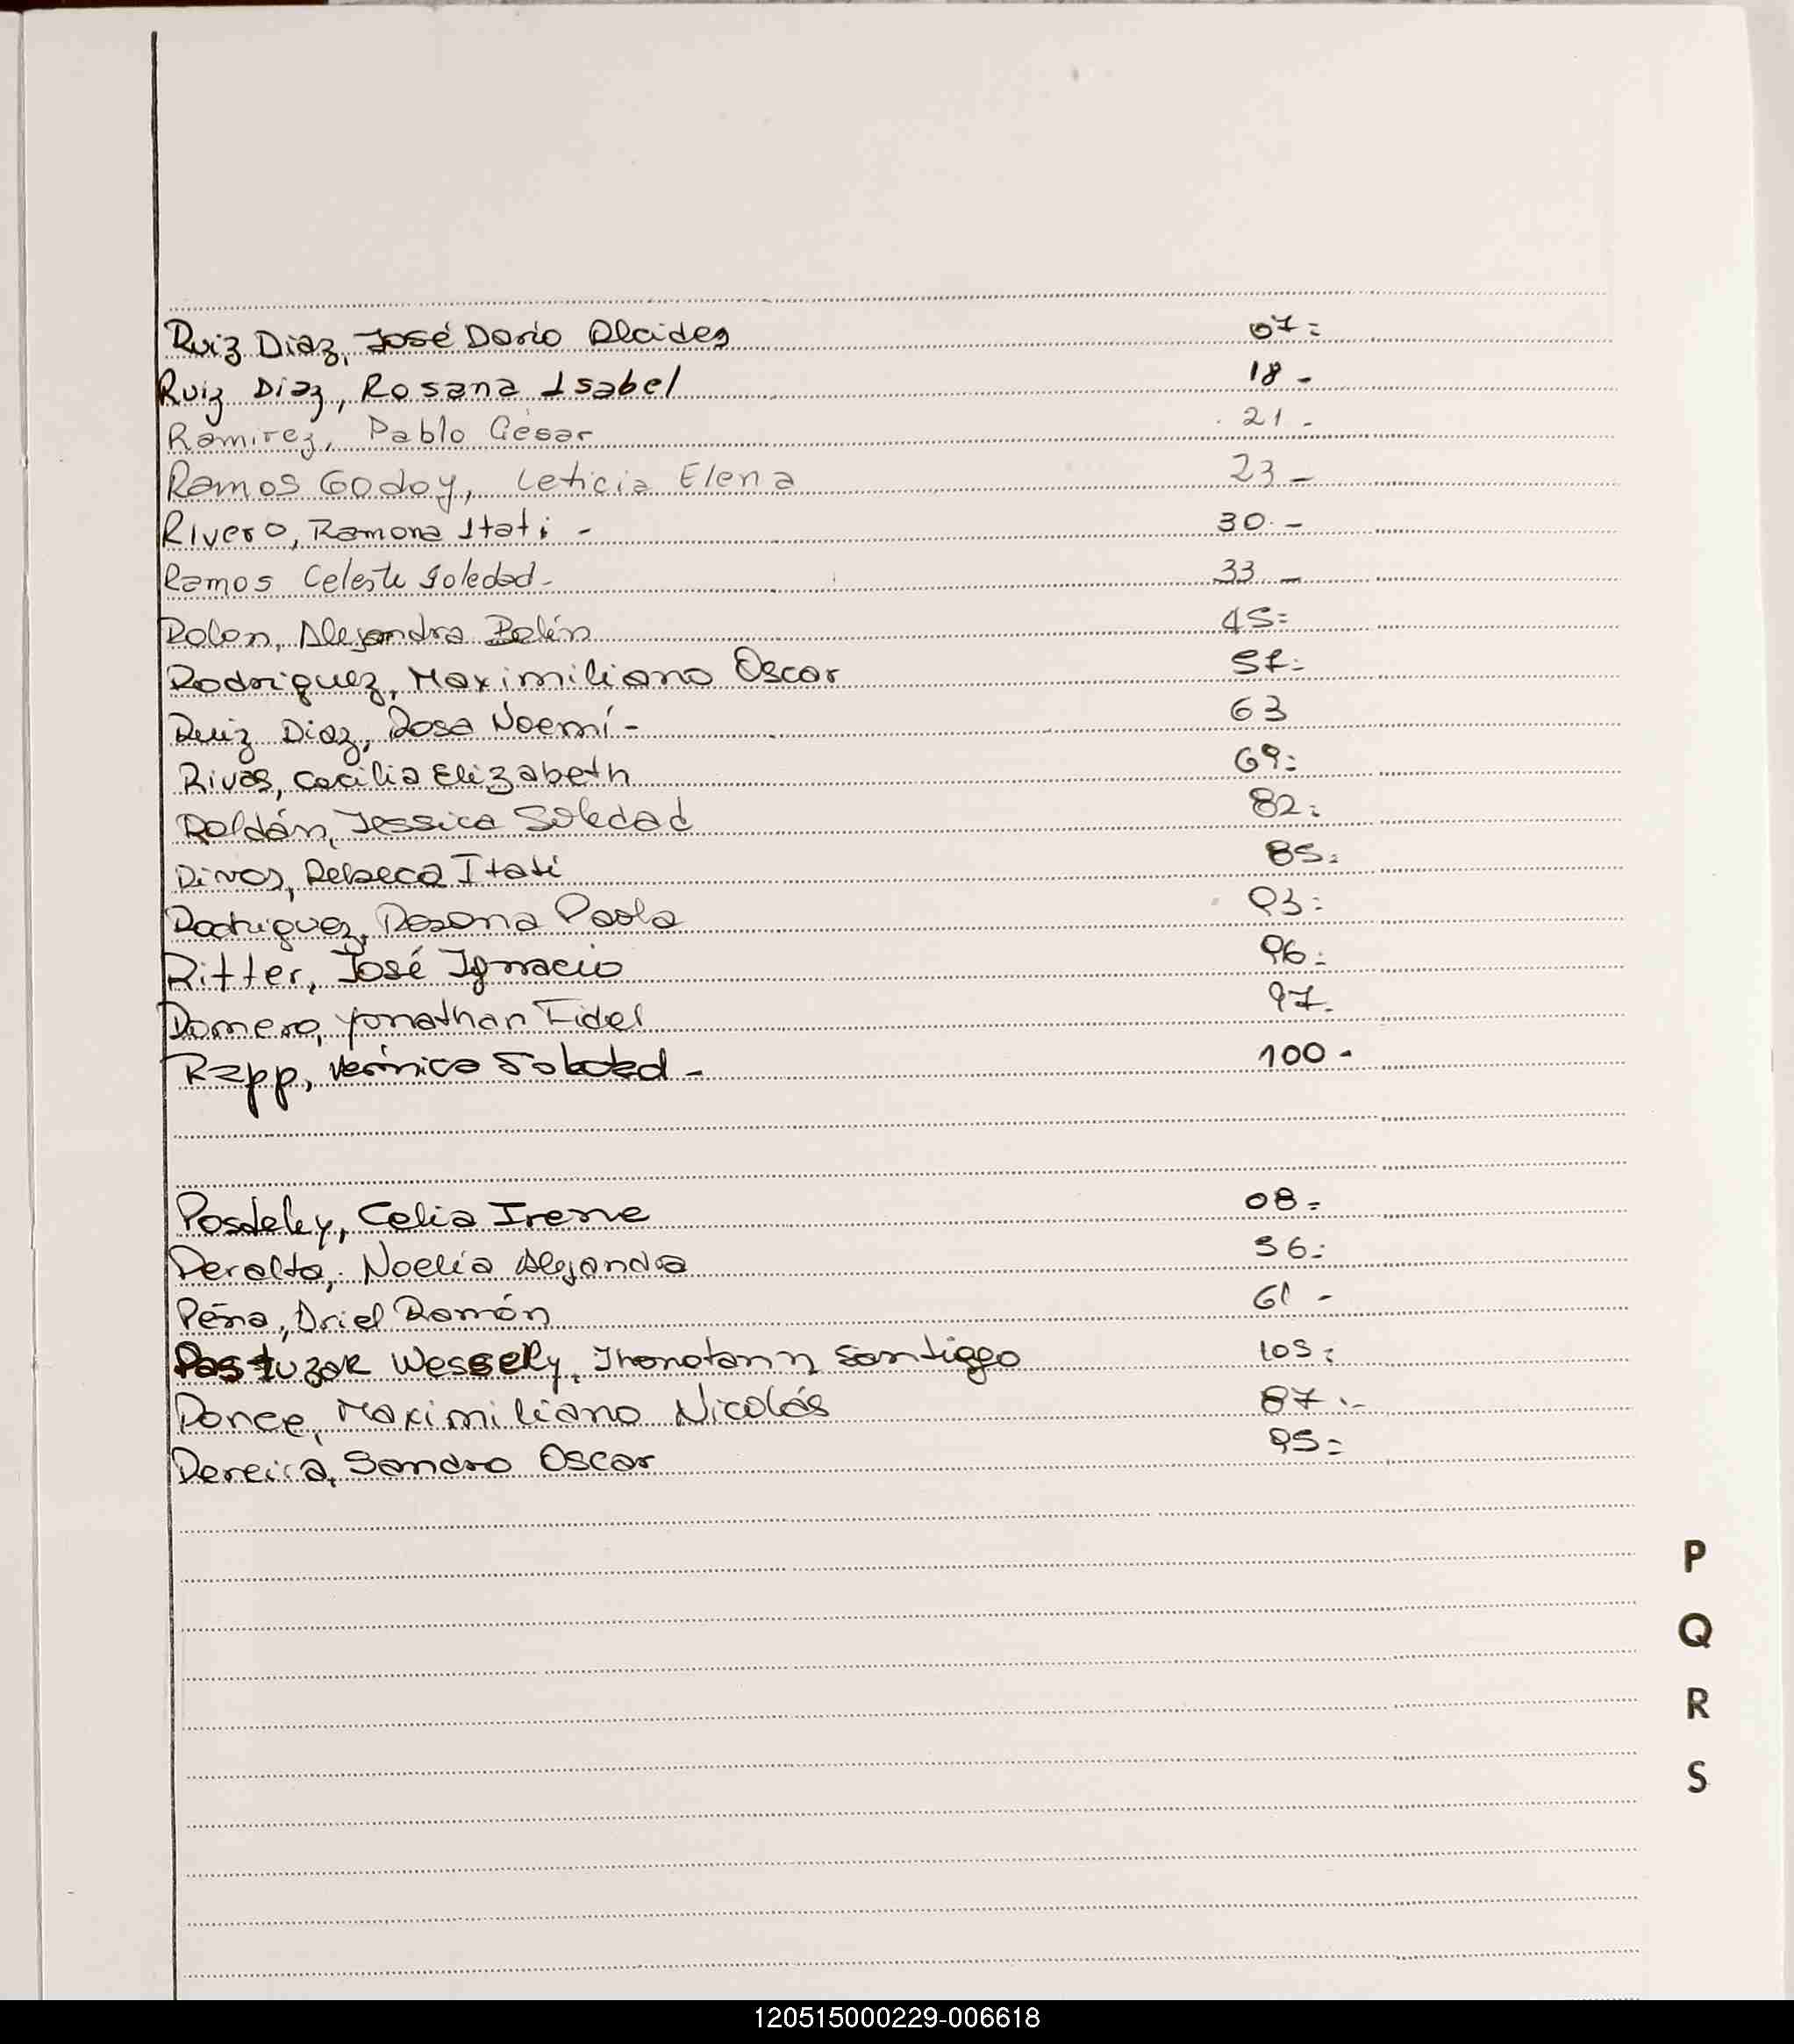 Ruiz Diaz, José Dario Alcides 07=
Ruiz Diaz, Rosana Isabel 18 -
Ramirez, Pablo César 21 -
Ramos Godoy, Leticia Elena 23 -
Rivero, Ramona Itati - 30 -
Ramos Celeste Soledad - 33 -
Rolon, Alejandra Belén 45=
Rodriguez, Maximiliano Oscar 57=
Ruiz Diaz, Rosa Noemí - 63
Rivas, Cecilia Elizabeth 69=
Roldán, Jessica Soledad 82=
Rivas, Rebeca Itati 85=
Rodriguez, Rosana Paola 93=
Ritter, José Ignacio 96=
Romero, Yonathan Fidel 97=
Rapp, Verónica Soledad - 100 -
Posdeley, Celia Irene 08=
Peralta, Noelia Alejandra 56=
Peña, Ariel Ramón 61 -
Pastuzak Wessely, Jhonotann Santiago 105=
Ponce, Maximiliano Nicolás 87=
Pereira, Sandro Oscar 95=
P
Q
R
S
120515000229-006618